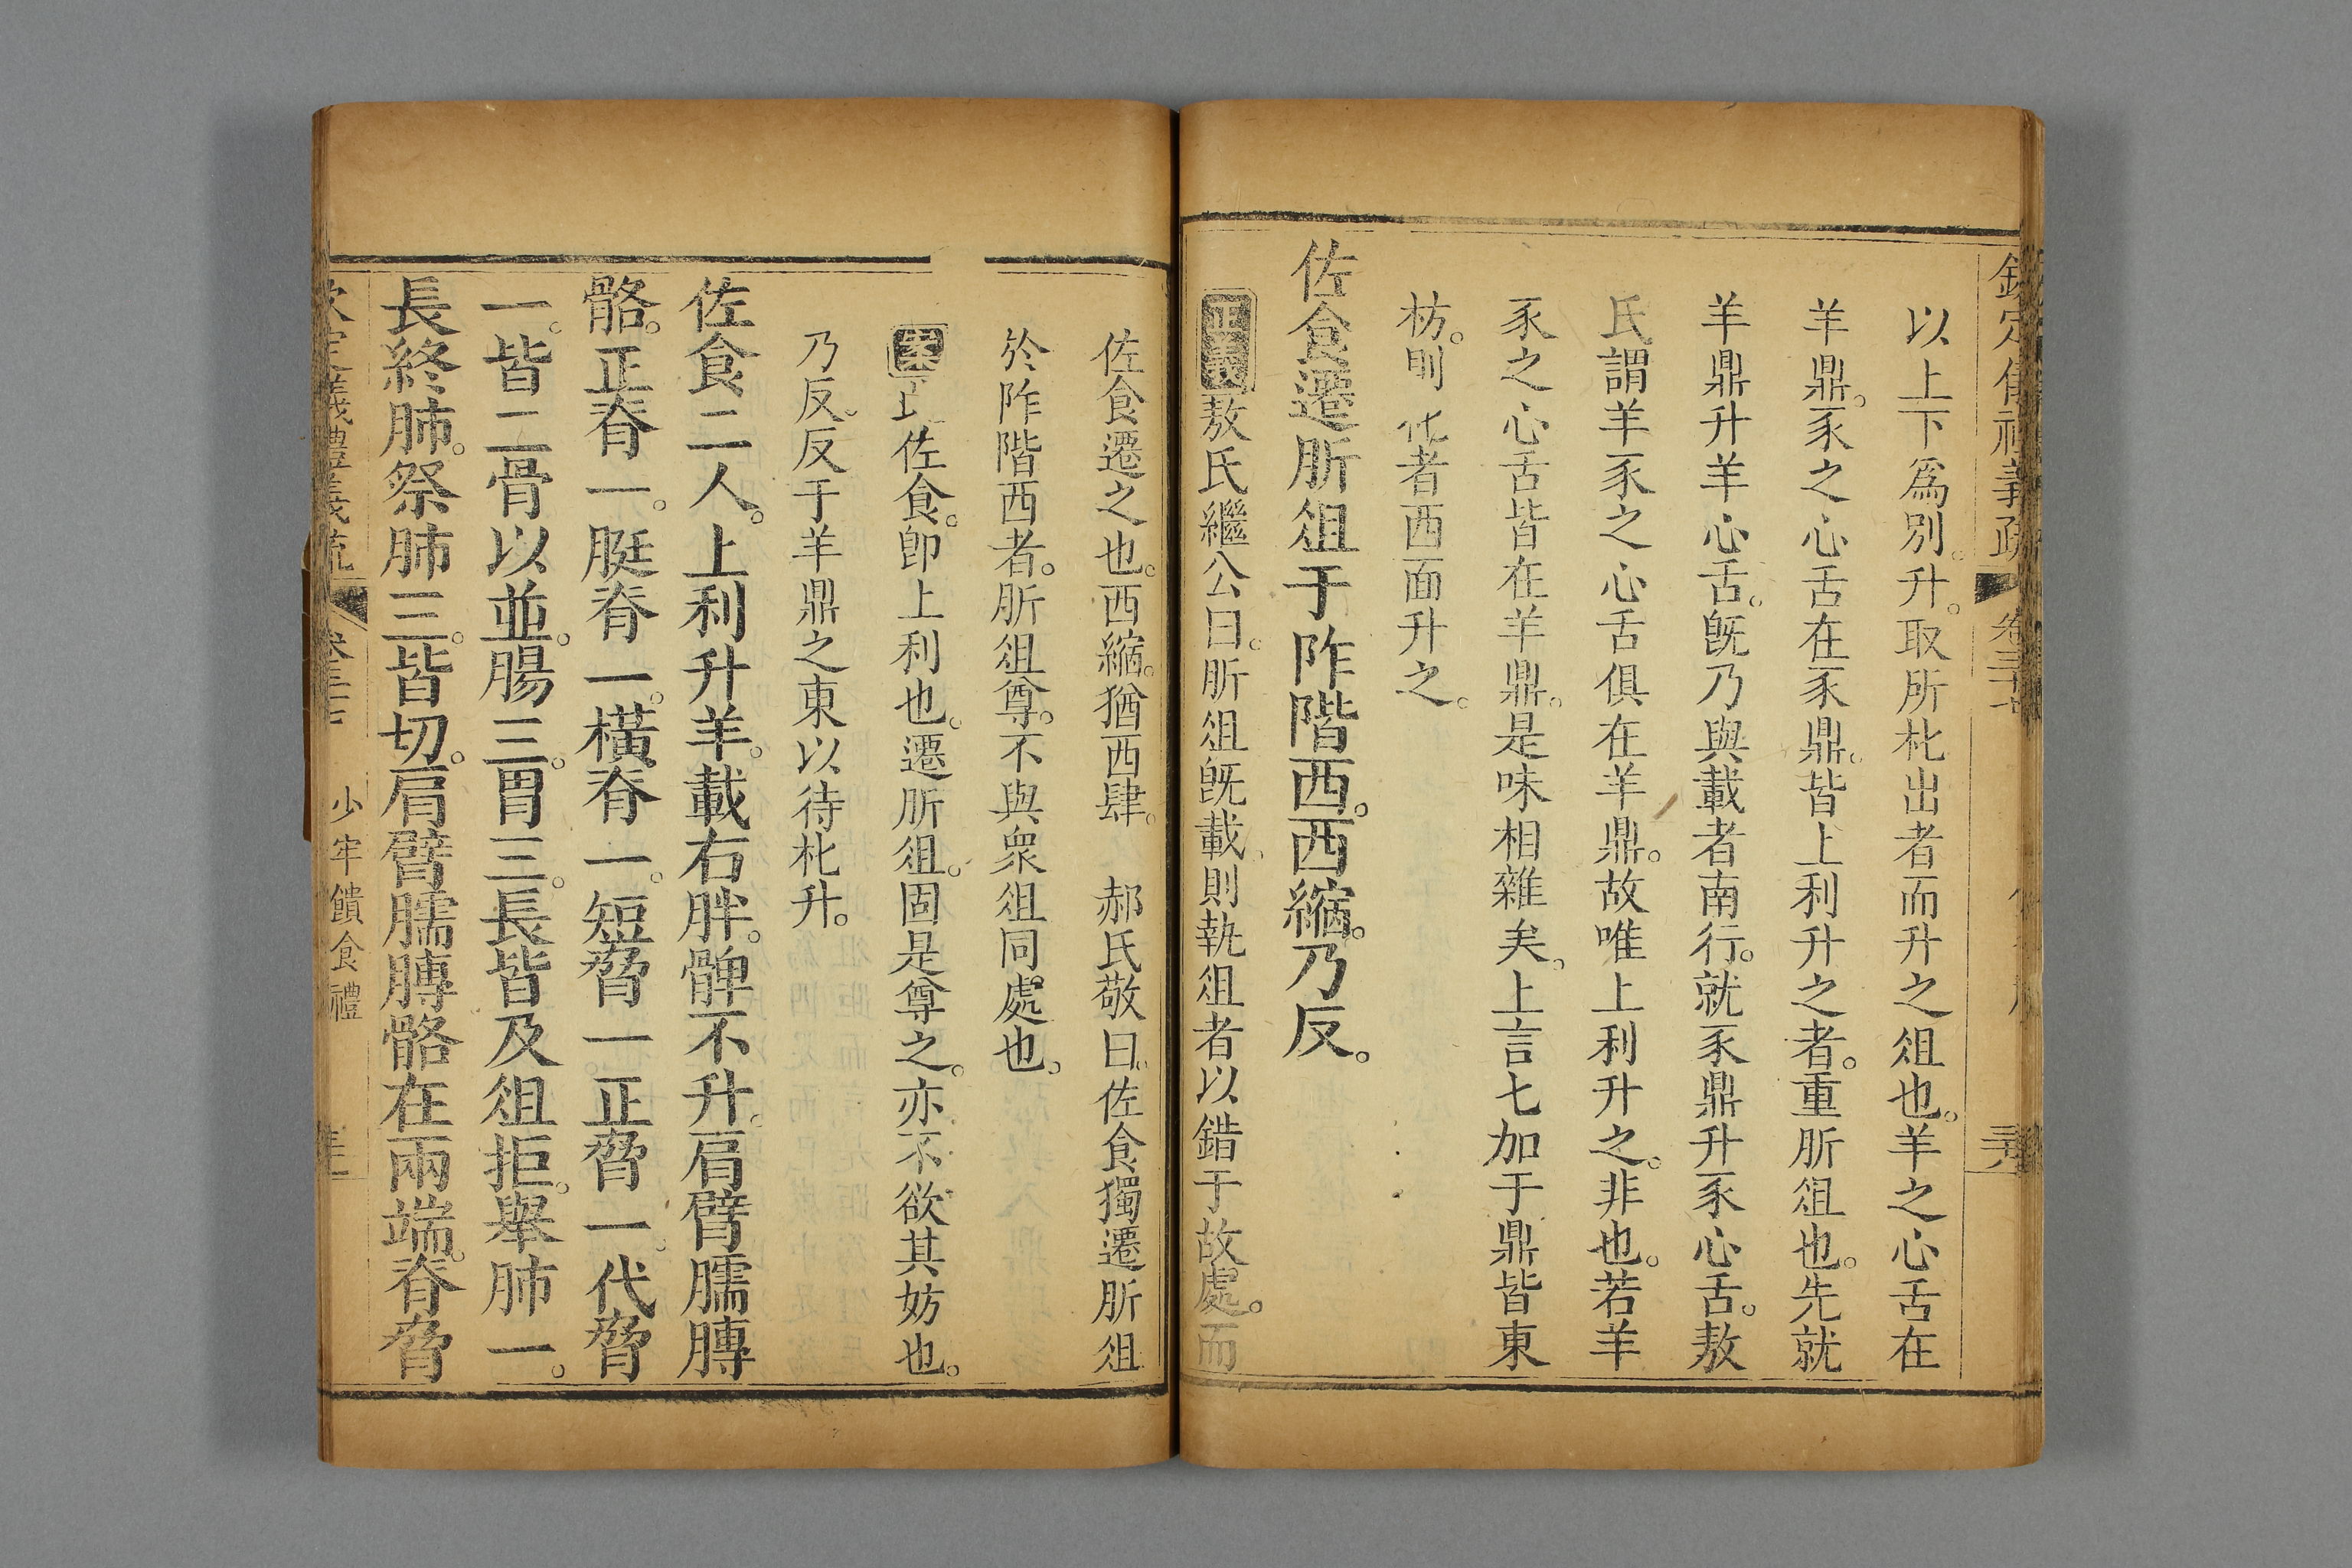 欽定儀禮義疏 卷三十七
以上下爲別。升。取所朼出者而升之俎也。羊之心舌在
羊鼎。豕之心舌在豕鼎。皆上利升之者。重肵俎也。先就
羊鼎升羊心舌。旣乃與載者南行。就豕鼎升豕心舌。敖
氏謂羊豕之心舌俱在羊鼎。故唯上利升之。非也。若羊
豕之心舌皆在羊鼎。是味相雜矣。上言匕加于鼎皆東
枋。則朼者西面升之。
佐食遷肵俎于阼階西。西縮。乃反。
正義敖氏繼公曰。肵俎旣載。則執俎者以錯于故處。而
佐食遷之也。西縮。猶西肆。 郝氏敬曰。佐食獨遷肵俎
於阼階西者。肵俎尊。不與衆俎同處也。
案 佐食。卽上利也。遷肵俎。固是尊之。亦不欲其妨也。
乃反。反于羊鼎之東以待朼升。
佐食二人。上利升羊。載右胖。髀不升。肩臂臑膊
骼。正脊一。脡脊一。橫脊一。短脅一。正脅一。代脅
一。皆二骨以並。腸三。胃三。長皆及俎拒。舉肺一。
長終肺。祭肺三。皆切。肩臂臑膊骼在兩端。脊脅
欽定儀禮義疏 卷三十七 少牢饋食禮